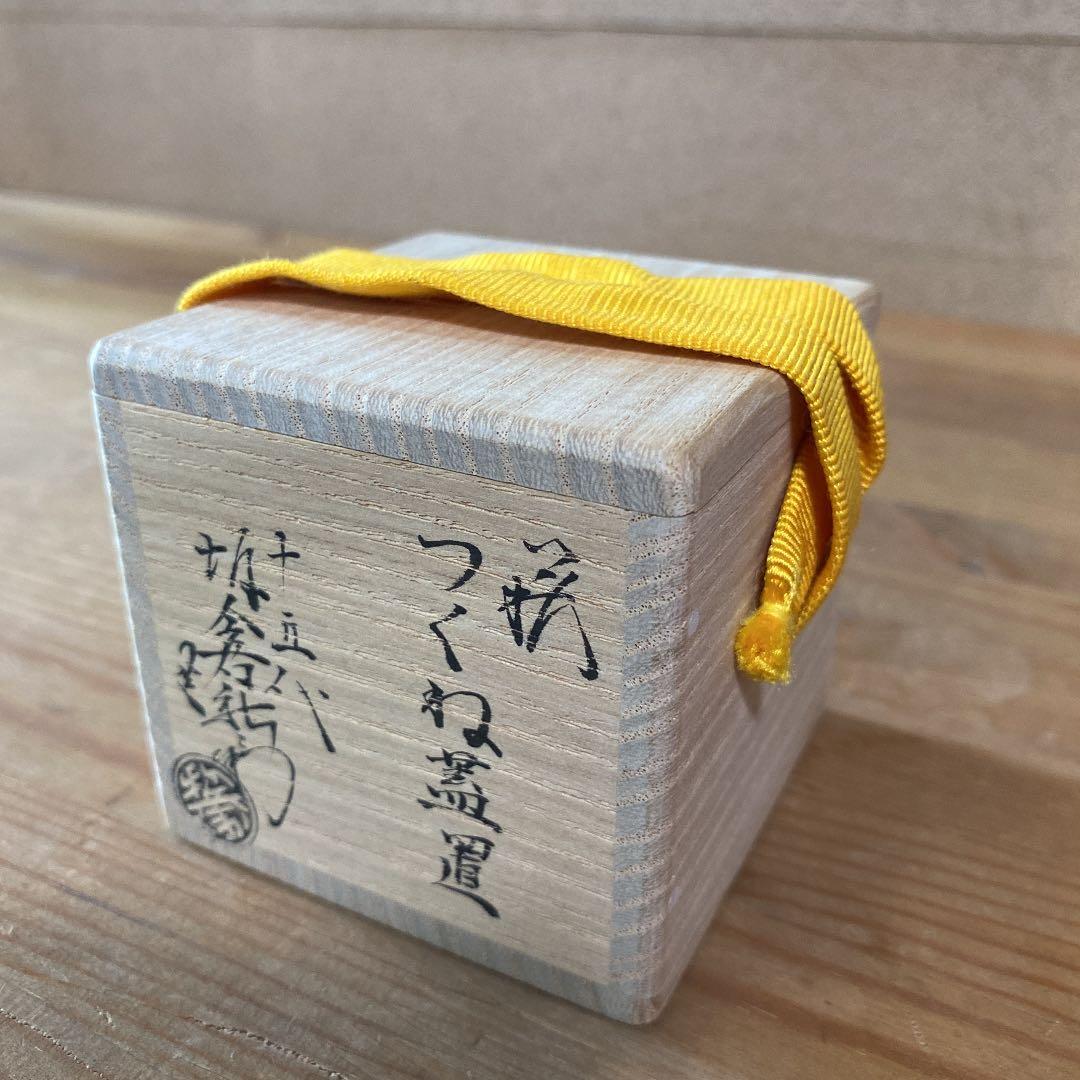 萩
つくね蓋置
十五代
坂倉新兵衛